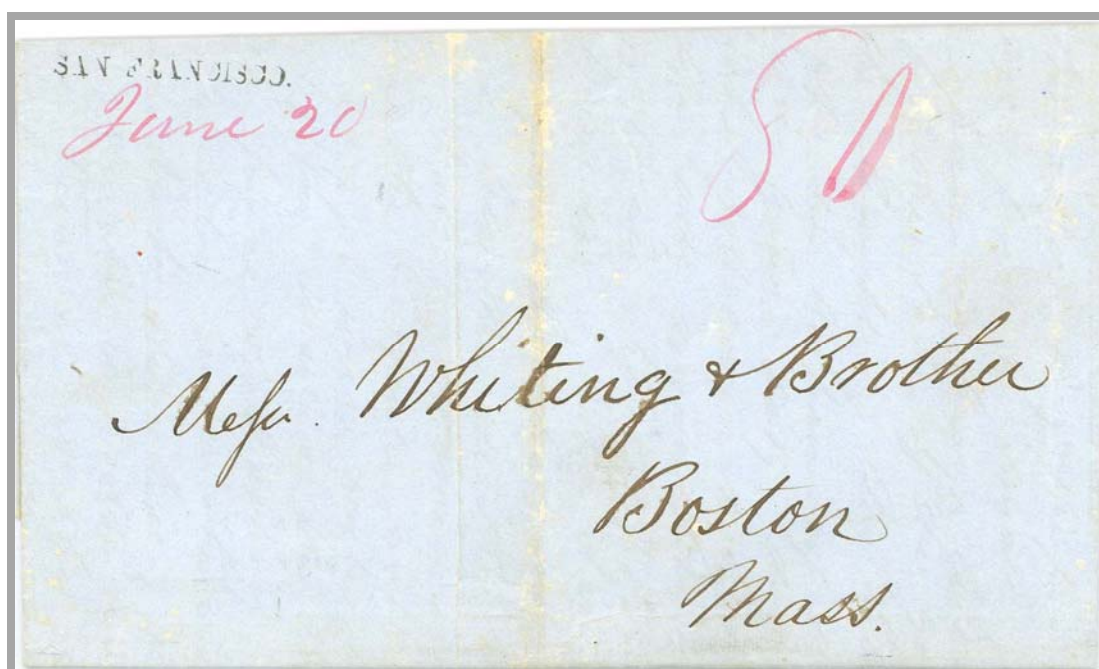 SAN FRANCISCO.
June 20
80
Messrs. Whiting & Brother
Boston
Mass.